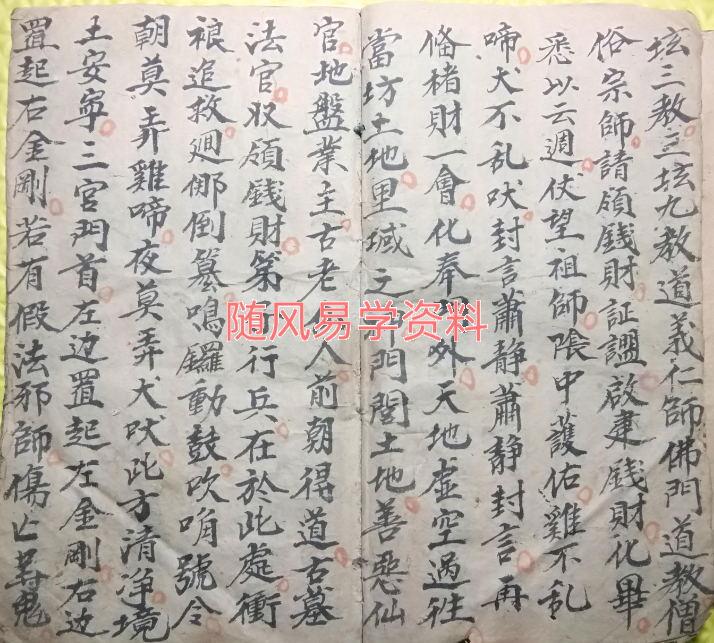 坛三教三坛九教道義仁師佛門道教僧
俗宗師請領錢財証盟啟建錢財化畢
悉以云週伏望祖師隂中護佑雞不乱
啼犬不乱吠封言蕭静蕭静封言再
俻楮財一會化奉 外天地虚空過往
當坊土地里域之神門閭土地善惡仙
官地盤業主古老 人前朝得道古墓
法官收領錢財第 行兵在於此處衝
裉追救迴倒籆鳴鑼動鼓吹角號令
朝莫弄雞啼夜莫弄犬吠此方清浄境
土安寧三官門首左边置起左金剛右边
置起右金剛若有假法邪師傷亡
随风易学资料